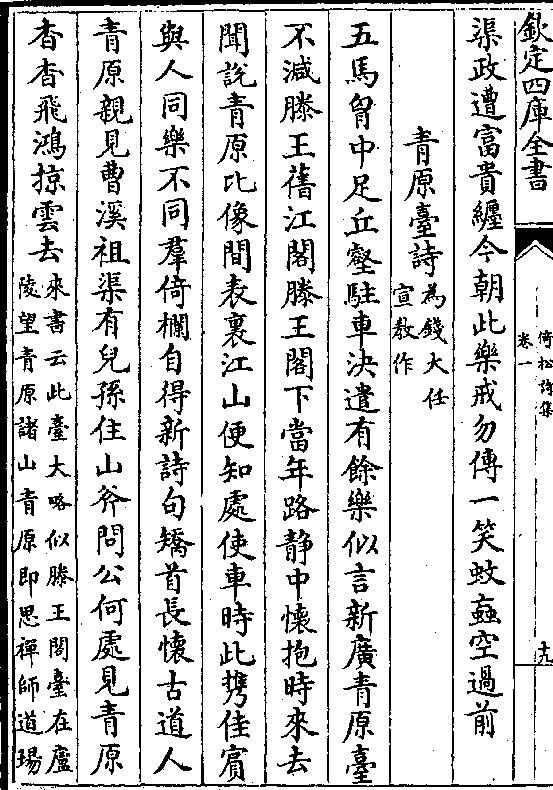 欽定四庫全書
倚松詩集
卷一
十九
渠政遭富貴纏今朝此樂戒勿傳一笑蚊䖟空過前
青原臺詩為錢大任宣教作
五馬胷中足丘壑駐車決遣有餘樂似言新廣青原臺
不減滕王舊江閣滕王閣下當年路静中懷抱時來去
聞說青原比像間表裏江山便知處使車時此携佳賔
與人同樂不同羣倚欄自得新詩句矯首長懷古道人
青原親見曹溪祖渠有兒孫住山斧問公何處見青原
杳杳飛鴻掠雲去來書云此臺大略似滕王閣臺在廬陵望青原諸山青原即思禪師道場